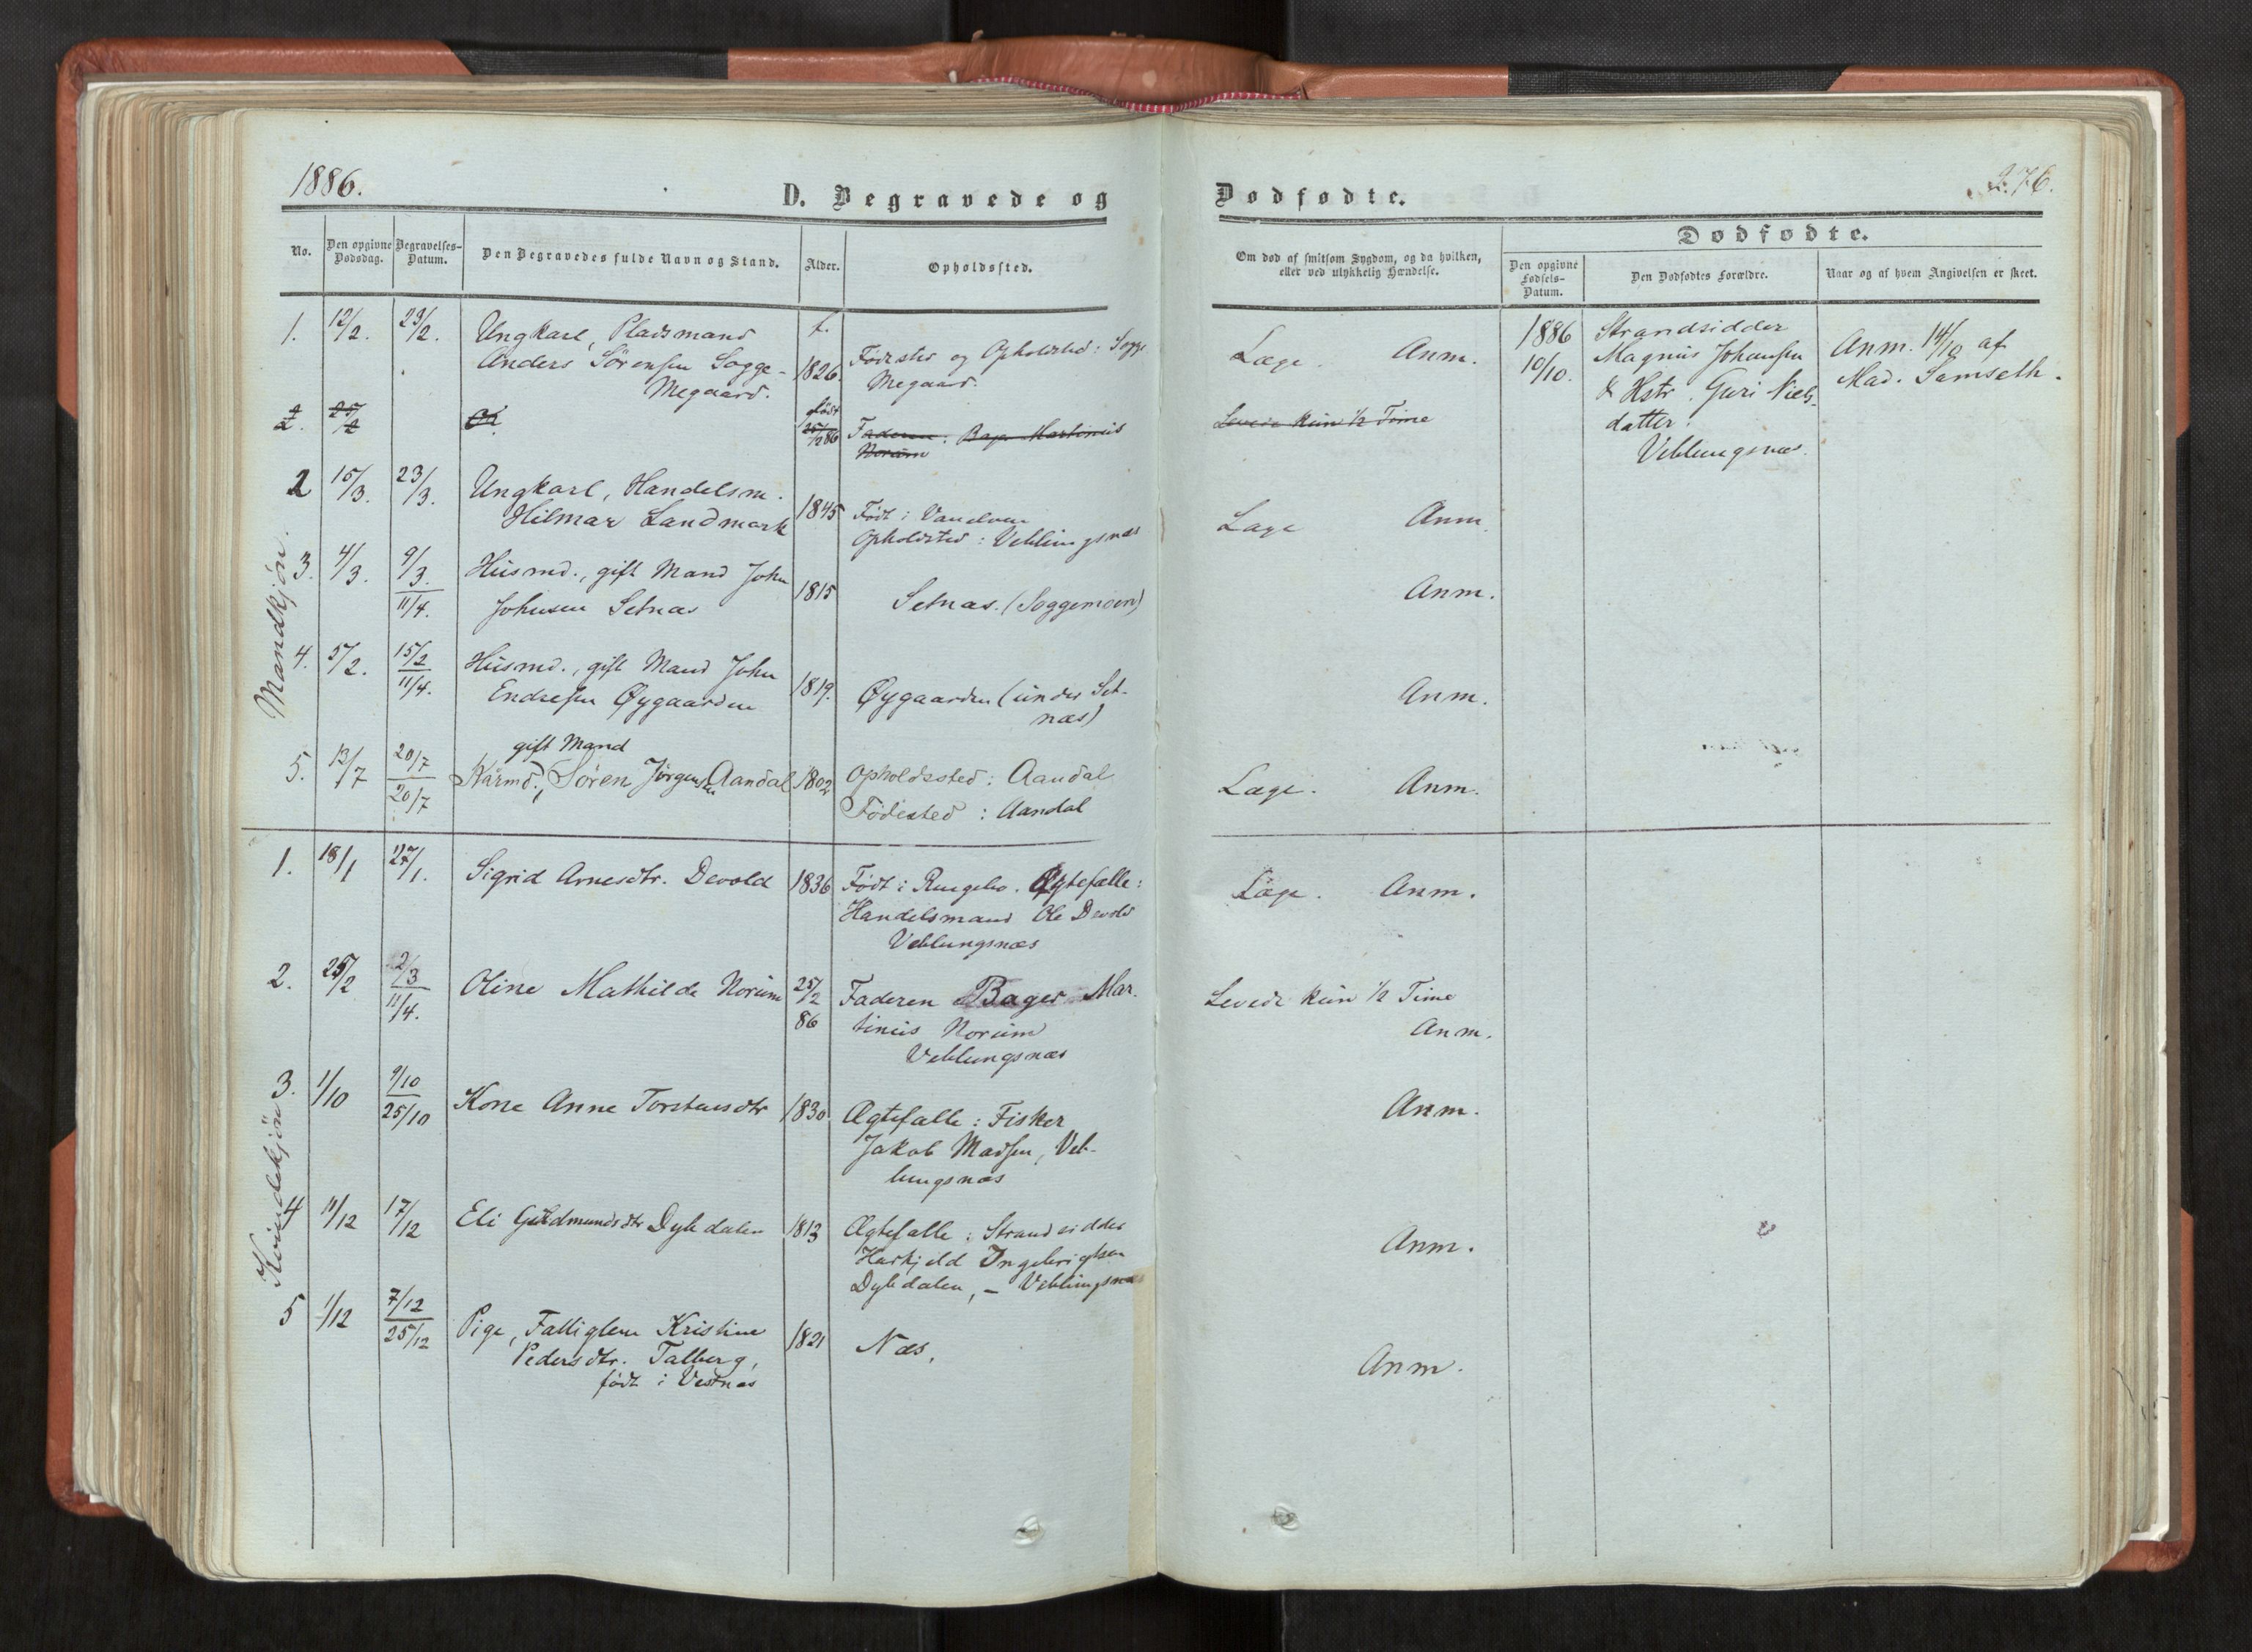 1886.
D. Begravede og
Dødfødte.
276.
No.
Den opgivne Dødsdag.
Begravelses-Datum.
Den Begravedes fulde Navn og Stand.
Alder.
Opholdssted.
Om død af smitsom Sygdom, og da hvilken, eller ved ulykkelig Hændelse.
Dødfødte.
Den opgivne Fødsels-Datum.
Den Dødfødtes Forældre.
Naar og af hvem Angivelsen er skeet.
Mandkjøn.
1. 12/2. 23/2. Ungkarl, Pladsmand f.
Anders Sørensen Sogge- 1826. Fødested og Opholdsted: Sogge
Megaard. Megaard.
Læge. Anm.
1886 Strandsidder
10/10. Magnus Johansen Anm. 14/10 af
& Hstr. Guri Niels- Mad. Samseth.
datter.
Veblungsnæs.
2. 25/2 født
25/2 86 Faderen: Bager Martinius
Norum
Levede kun 1/2 Time
2 15/3. 23/3. Ungkarl, Handelsm.
Hilmar Landmark 1845 Født i Vanelven
Opholdsted: Veblungsnæs
Læge Anm.
3. 4/3. 9/3. Husmd., gift Mand John
11/4. Johnsen Setnæs 1815 Setnæs. (Soggemoen)
Anm.
4. 5/2. 15/2 Husmd., gift Mand John
11/4. Endresen Øygaarden 1819. Øygaarden (under Set-
næs)
Anm.
gift Mand
5. 13/7 20/7 Kårmd., Søren Jørgensen Aandal 1802 Opholdssted: Aandal
20/7 Fødested: Aandal
Læge. Anm.
Kvindekjøn
1. 18/1 27/1. Sigrid Arnesdtr. Devold 1836 Født i Ringebo. Ægtefælle:
Handelsmand Ole Devold
Veblungsnæs
Læge. Anm.
2. 25/2 2/3 Oline Mathilde Norum 25/2 Faderen Bager Mar-
11/4. 86 tinius Norum
Veblungsnæs
Levede kun 1/2 Time
Anm.
3. 1/10 9/10 Kone Anne Torstensdtr 1830 Ægtefælle: Fisker
25/10 Jakob Madsen, Veb-
lungsnæs
Anm.
4 11/12 17/12 Eli Guldmundsdtr Dybdalen 1813 Ægtefælle: Strandsidder
Haskjeld Ingebrigtsen
Dybdalen, - Veblungsnæs
Anm.
5 1/12 7/12 Pige, Fattiglem Kristine
25/12 Pedersdtr. Talberg, 1821 Næs.
født i Vestnæs
Anm.